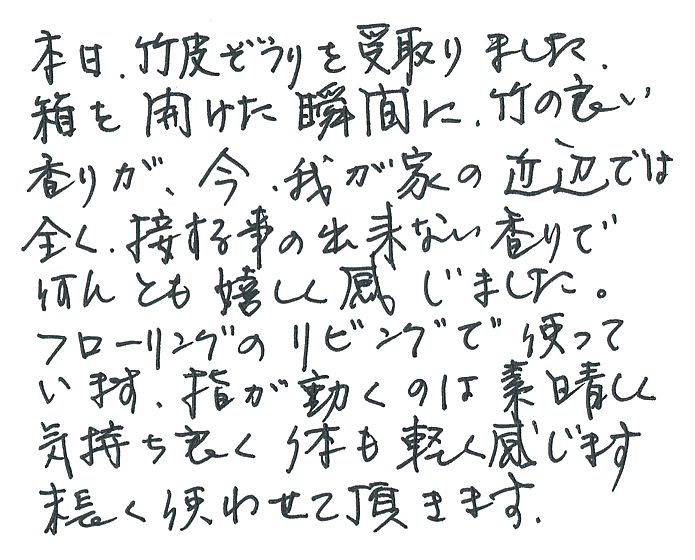 本日、竹皮ぞうりを受取りました。
箱を開けた瞬間に、竹の良い
香りが、今、我が家の近辺では
全く、接する事の出来ない香りで
何んとも嬉しく感じました。
フローリングのリビングで使って
います、指が動くのは素晴しく
気持ち良く体も軽く感じます
末長く使わせて頂きます。